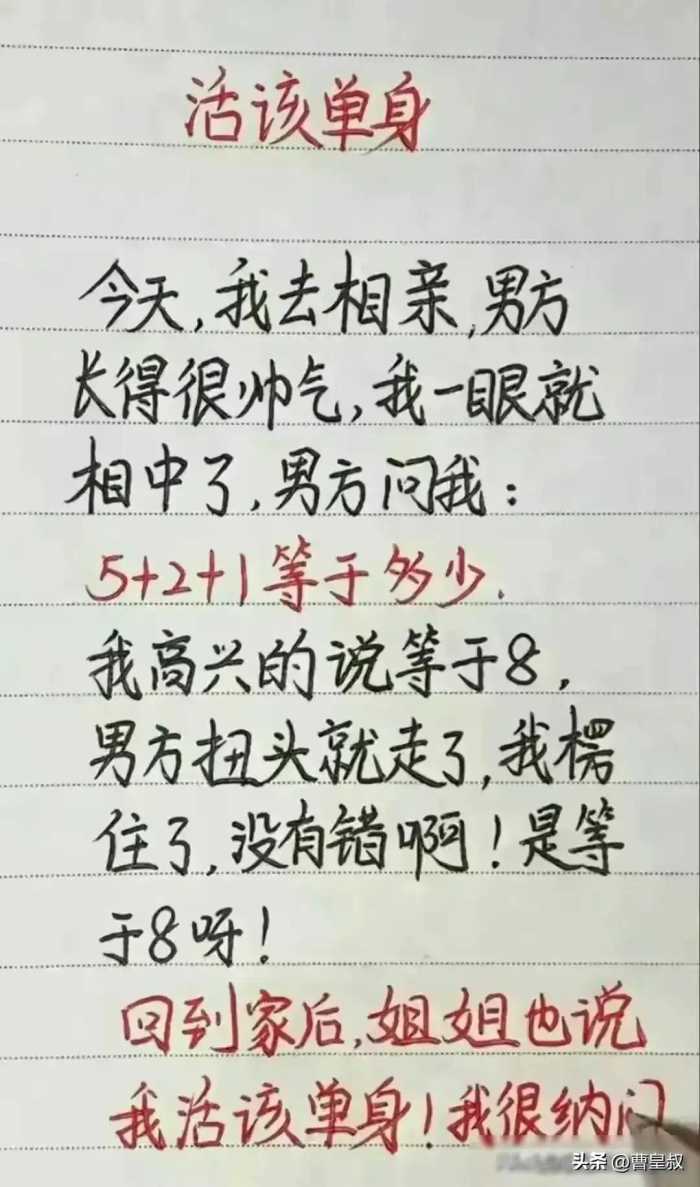 活该单身
今天,我去相亲,男方
长得很帅气,我一眼就
相中了,男方问我:
5+2+1等于多少.
我高兴的说等于8,
男方扭头就走了,我楞
住了,没有错啊!是等
于8呀!
回到家后,姐姐也说
我活该单身!我很纳闷
头条 @曹皇叔